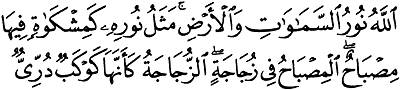 ٱللَّهُ نُورُ ٱلسَّمَٰوَٰتِ وَٱلْأَرْضِ ۚ مَثَلُ نُورِهِۦ كَمِشْكَوٰةٍ فِيهَا
مِصْبَاحٌ ۖ ٱلْمِصْبَاحُ فِى زُجَاجَةٍ ۖ ٱلزُّجَاجَةُ كَأَنَّهَا كَوْكَبٌ دُرِّىٌّ